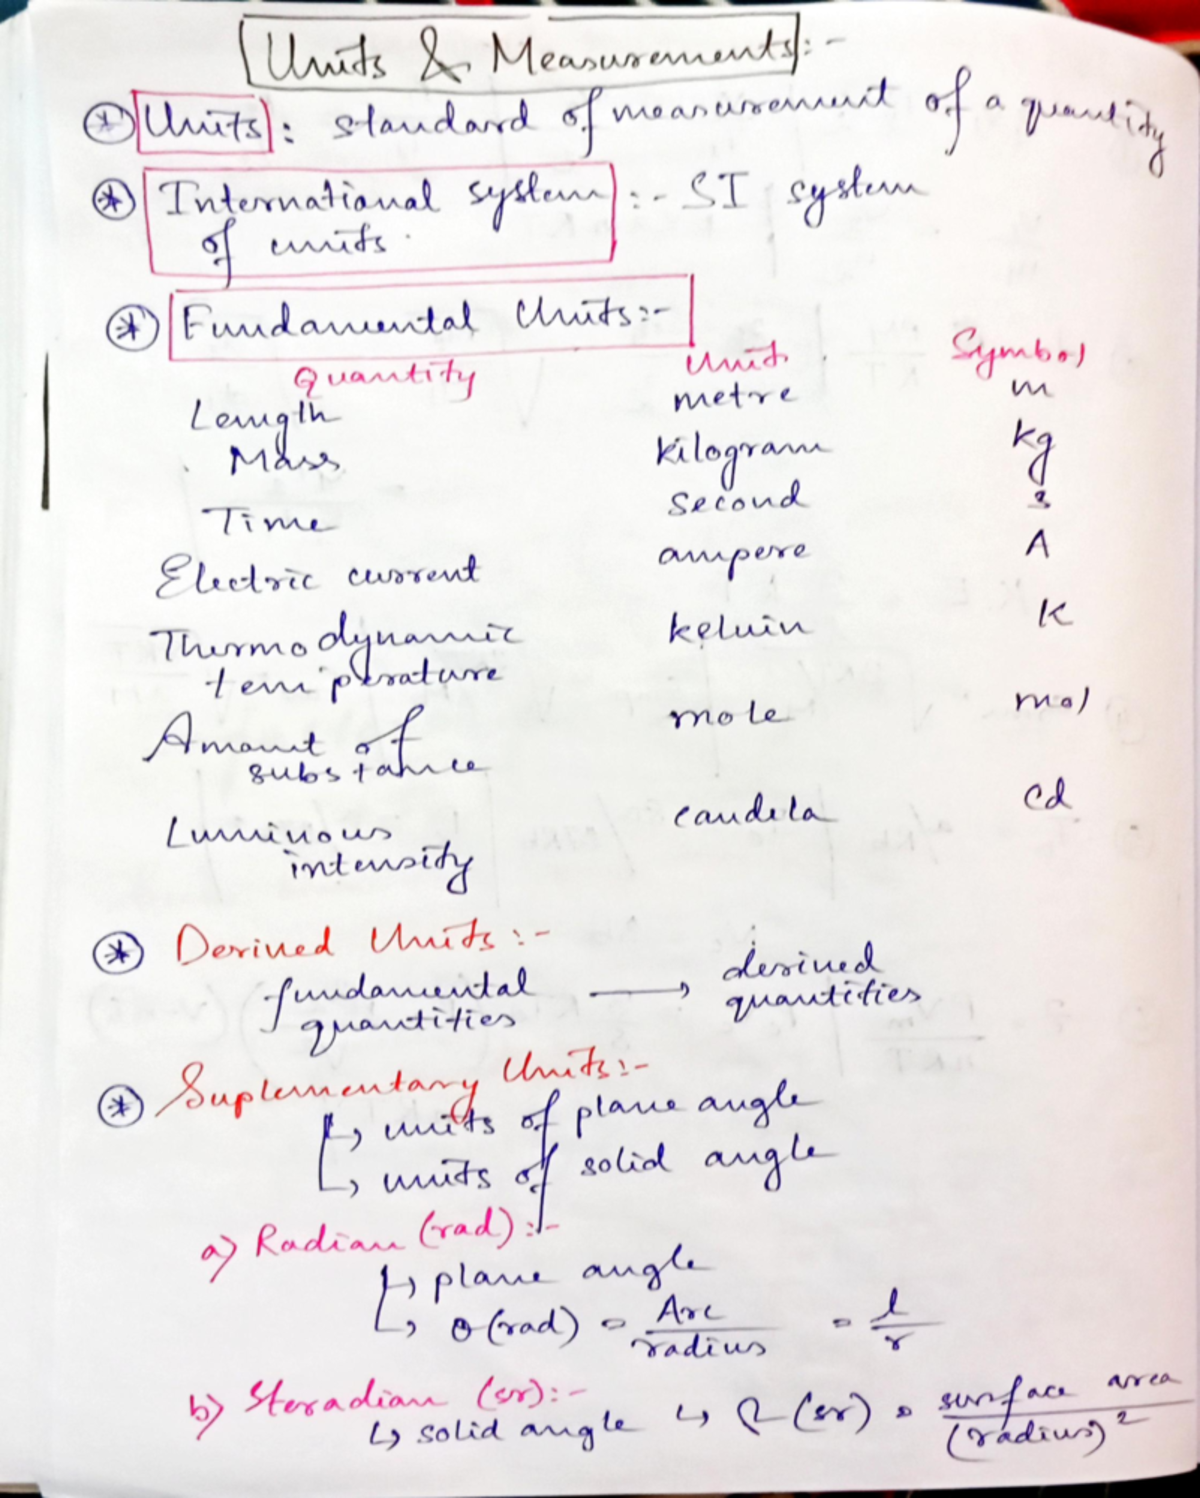 Units & Measurements:-
* Units: standard of measurement of a quantity
* International system :- SI system
of units.
* Fundamental Units:-
Quantity Unit Symbol
Length metre m
Mass kilogram kg
Time second s
Electric current ampere A
Thermodynamic kelvin K
temperature
Amount of mole mol
substance
Luminous candela cd
intensity
* Derived Units:-
fundamental → derived
quantities quantities
* Suplementary Units:-
↳ units of plane angle
↳ units of solid angle
a) Radian (rad):-
↳ plane angle
↳ θ (rad) = Arc/radius = l/r
b) Steradian (sr):-
↳ solid angle ↳ Ω (sr) = surface area/(radius)²